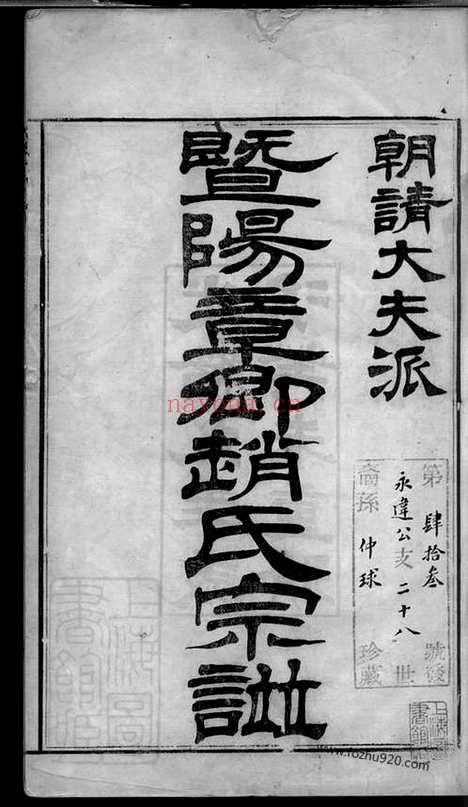 朝請大夫派
暨陽章卿趙氏宗譜
第肆拾叁號發
永違公支二十八世
裔孫仲球珍藏
nayona.cn
www.fozhu920.com